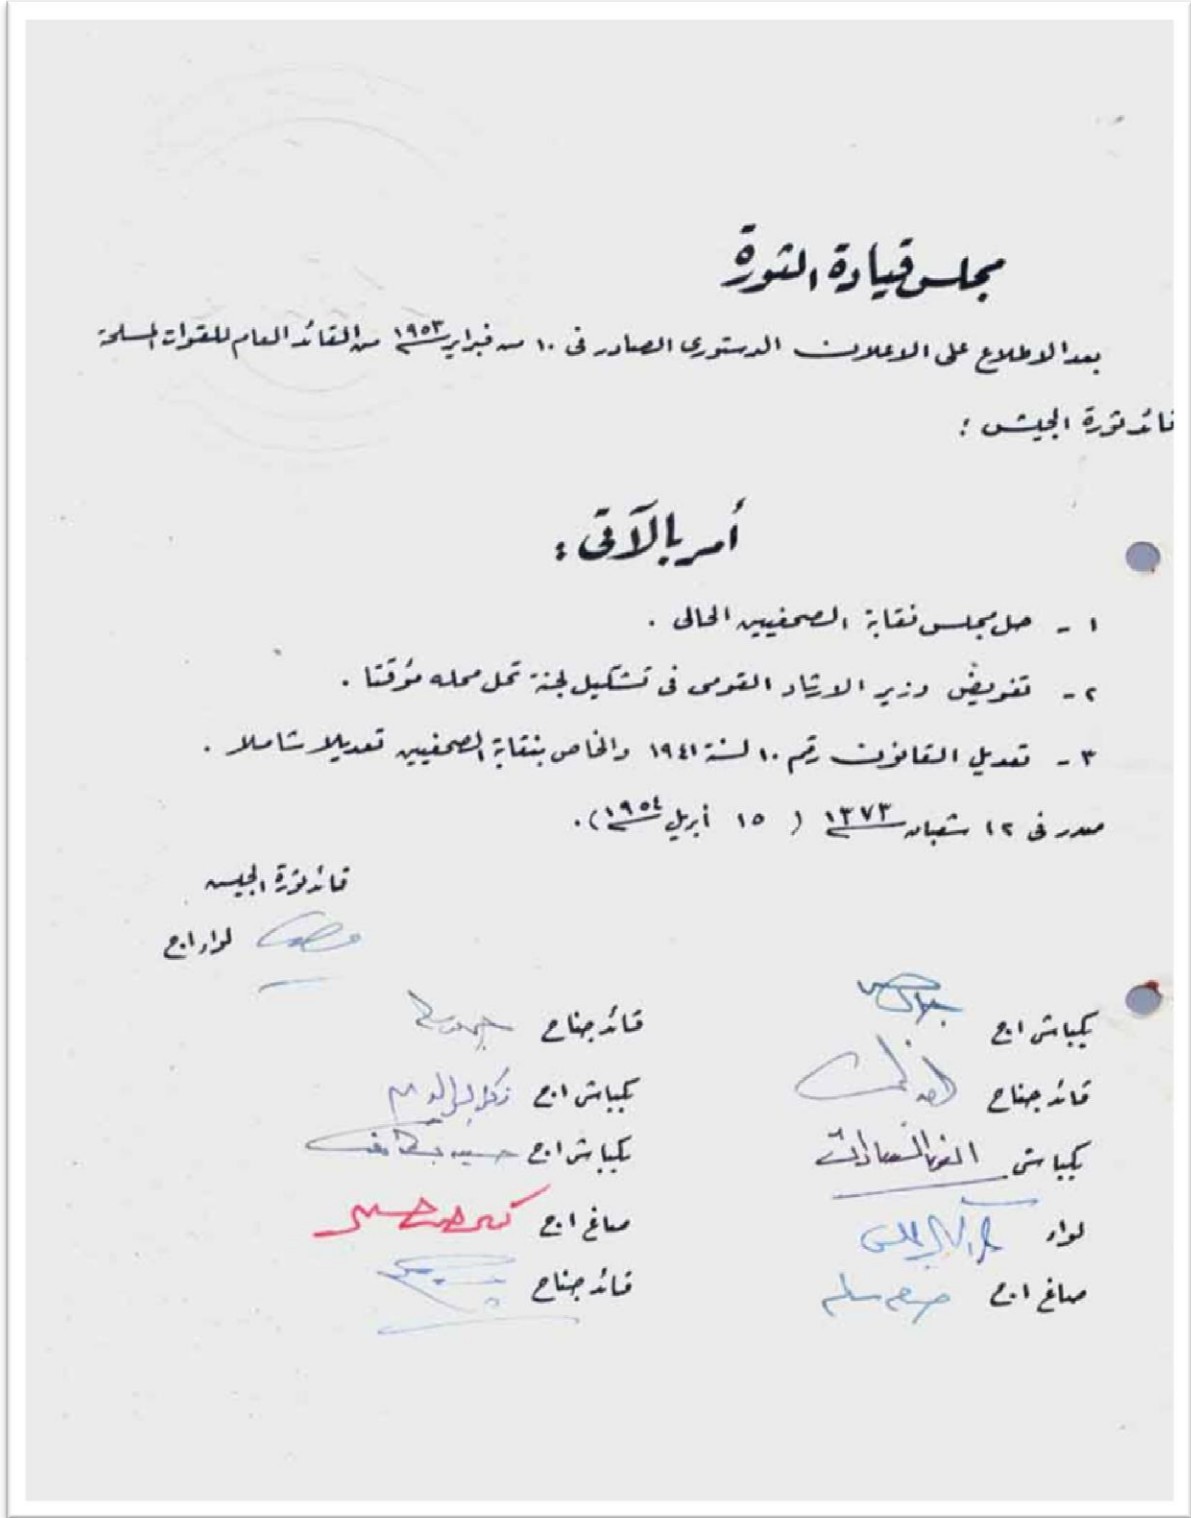 مجلس قيادة الثورة
بعد الاطلاع على الاعلان الدستورى الصادر فى ١٠ من فبراير ١٩٥٣ من القائد العام للقوات المسلحة
قائد ثورة الجيش :
أمر بالآتى :
١ - حل مجلس نقابة الصحفيين الحالى .
٢ - تفويض وزير الارشاد القومى فى تشكيل لجنة تحل محله مؤقتا .
٣ - تعديل القانون رقم ١٠ لسنة ١٩٤١ والخاص بنقابة الصحفيين تعديلا شاملا .
صدر فى ١٢ شعبان ١٣٧٣ ( ١٥ أبريل ١٩٥٤ ) .
قائد ثورة الجيش
لواء أ.ح
بكباشى أ.ح
قائد جناح
قائد جناح
بكباشى أ.ح زكريا محيى الدين
بكباشى أنور السادات
بكباشى أ.ح حسين
لواء
صاغ أ.ح كمال الدين حسين
صاغ أ.ح صلاح سالم
قائد جناح